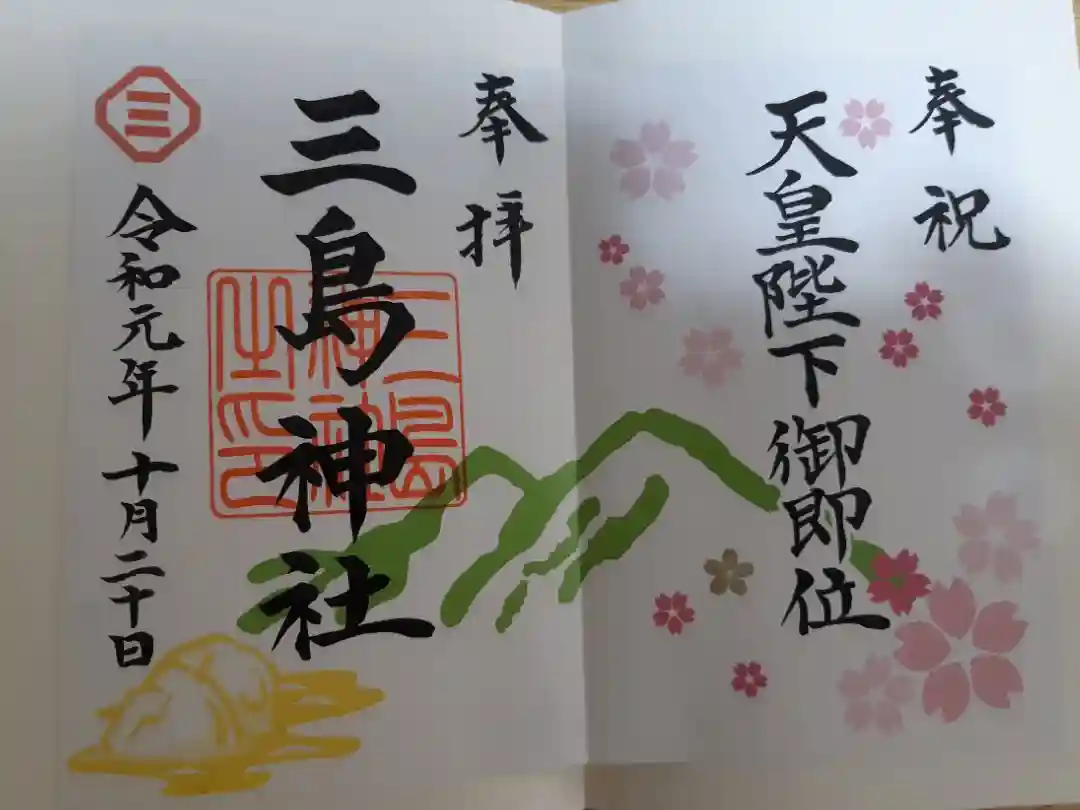 奉祝
天皇陛下御即位
奉拝
三島神社
三島神社神社之印
令和元年 十月二十日
三